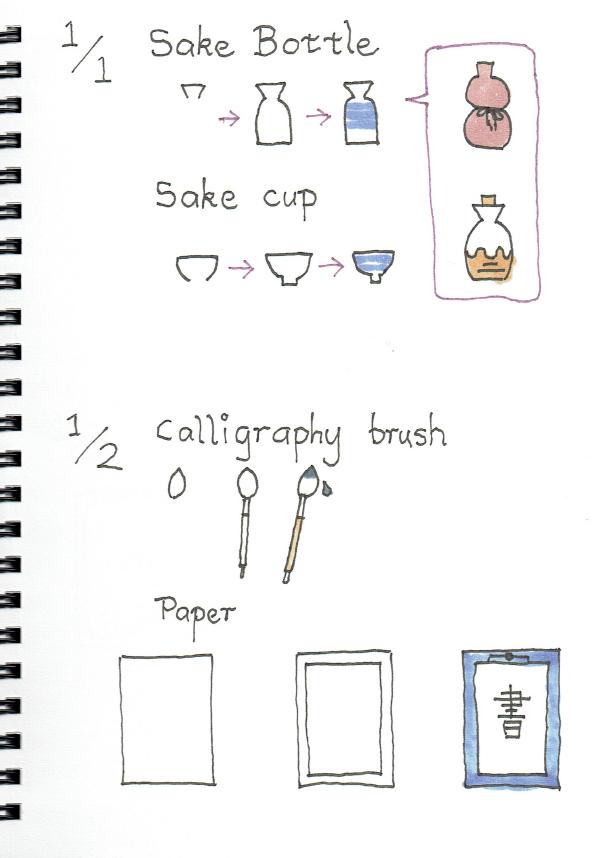 1/1 Sake Bottle
Sake cup
1/2 Calligraphy brush
Paper
書